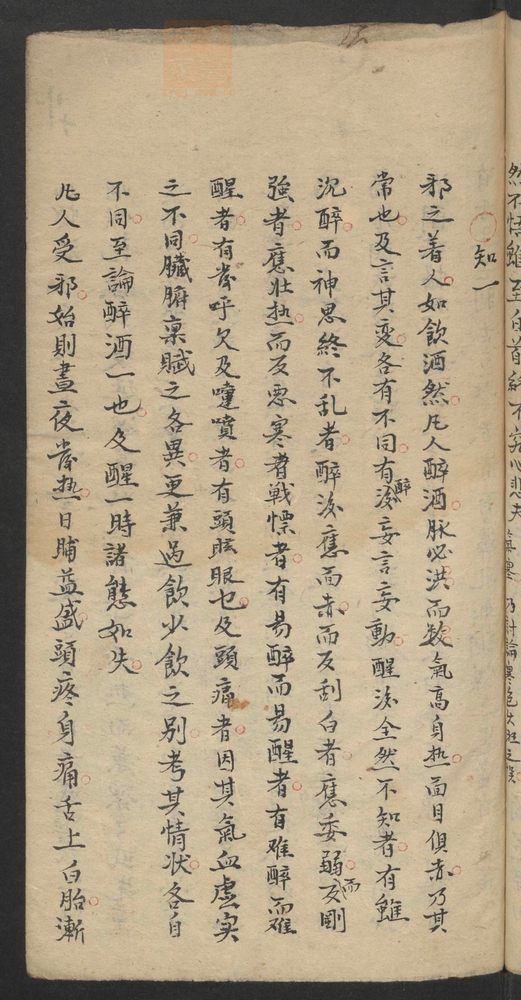 然不悟雖至白首終不究心悲夫
知一
邪之着人如飲酒然凡人醉酒脉必洪而数氣高身热面目俱赤乃其
常也及言其变各有不同有醉後妄言妄動醒後全然不知者有雖
沉醉而神思終不乱者醉後應面赤而反刮白者應委弱而反剛
強者應壯热而反惡寒者戰慄者有易醉而易醒者有难醉而难
醒者有發呼欠及嚏噴者有頭眩眼也及頭痛者因其氣血虛实
之不同臟腑稟賦之各異更兼過飲少飲之别考其情状各自
不同至論醉酒一也及醒一時諸態如失
凡人受邪始則晝夜發热日晡益盛頭疼身痛舌上白胎漸